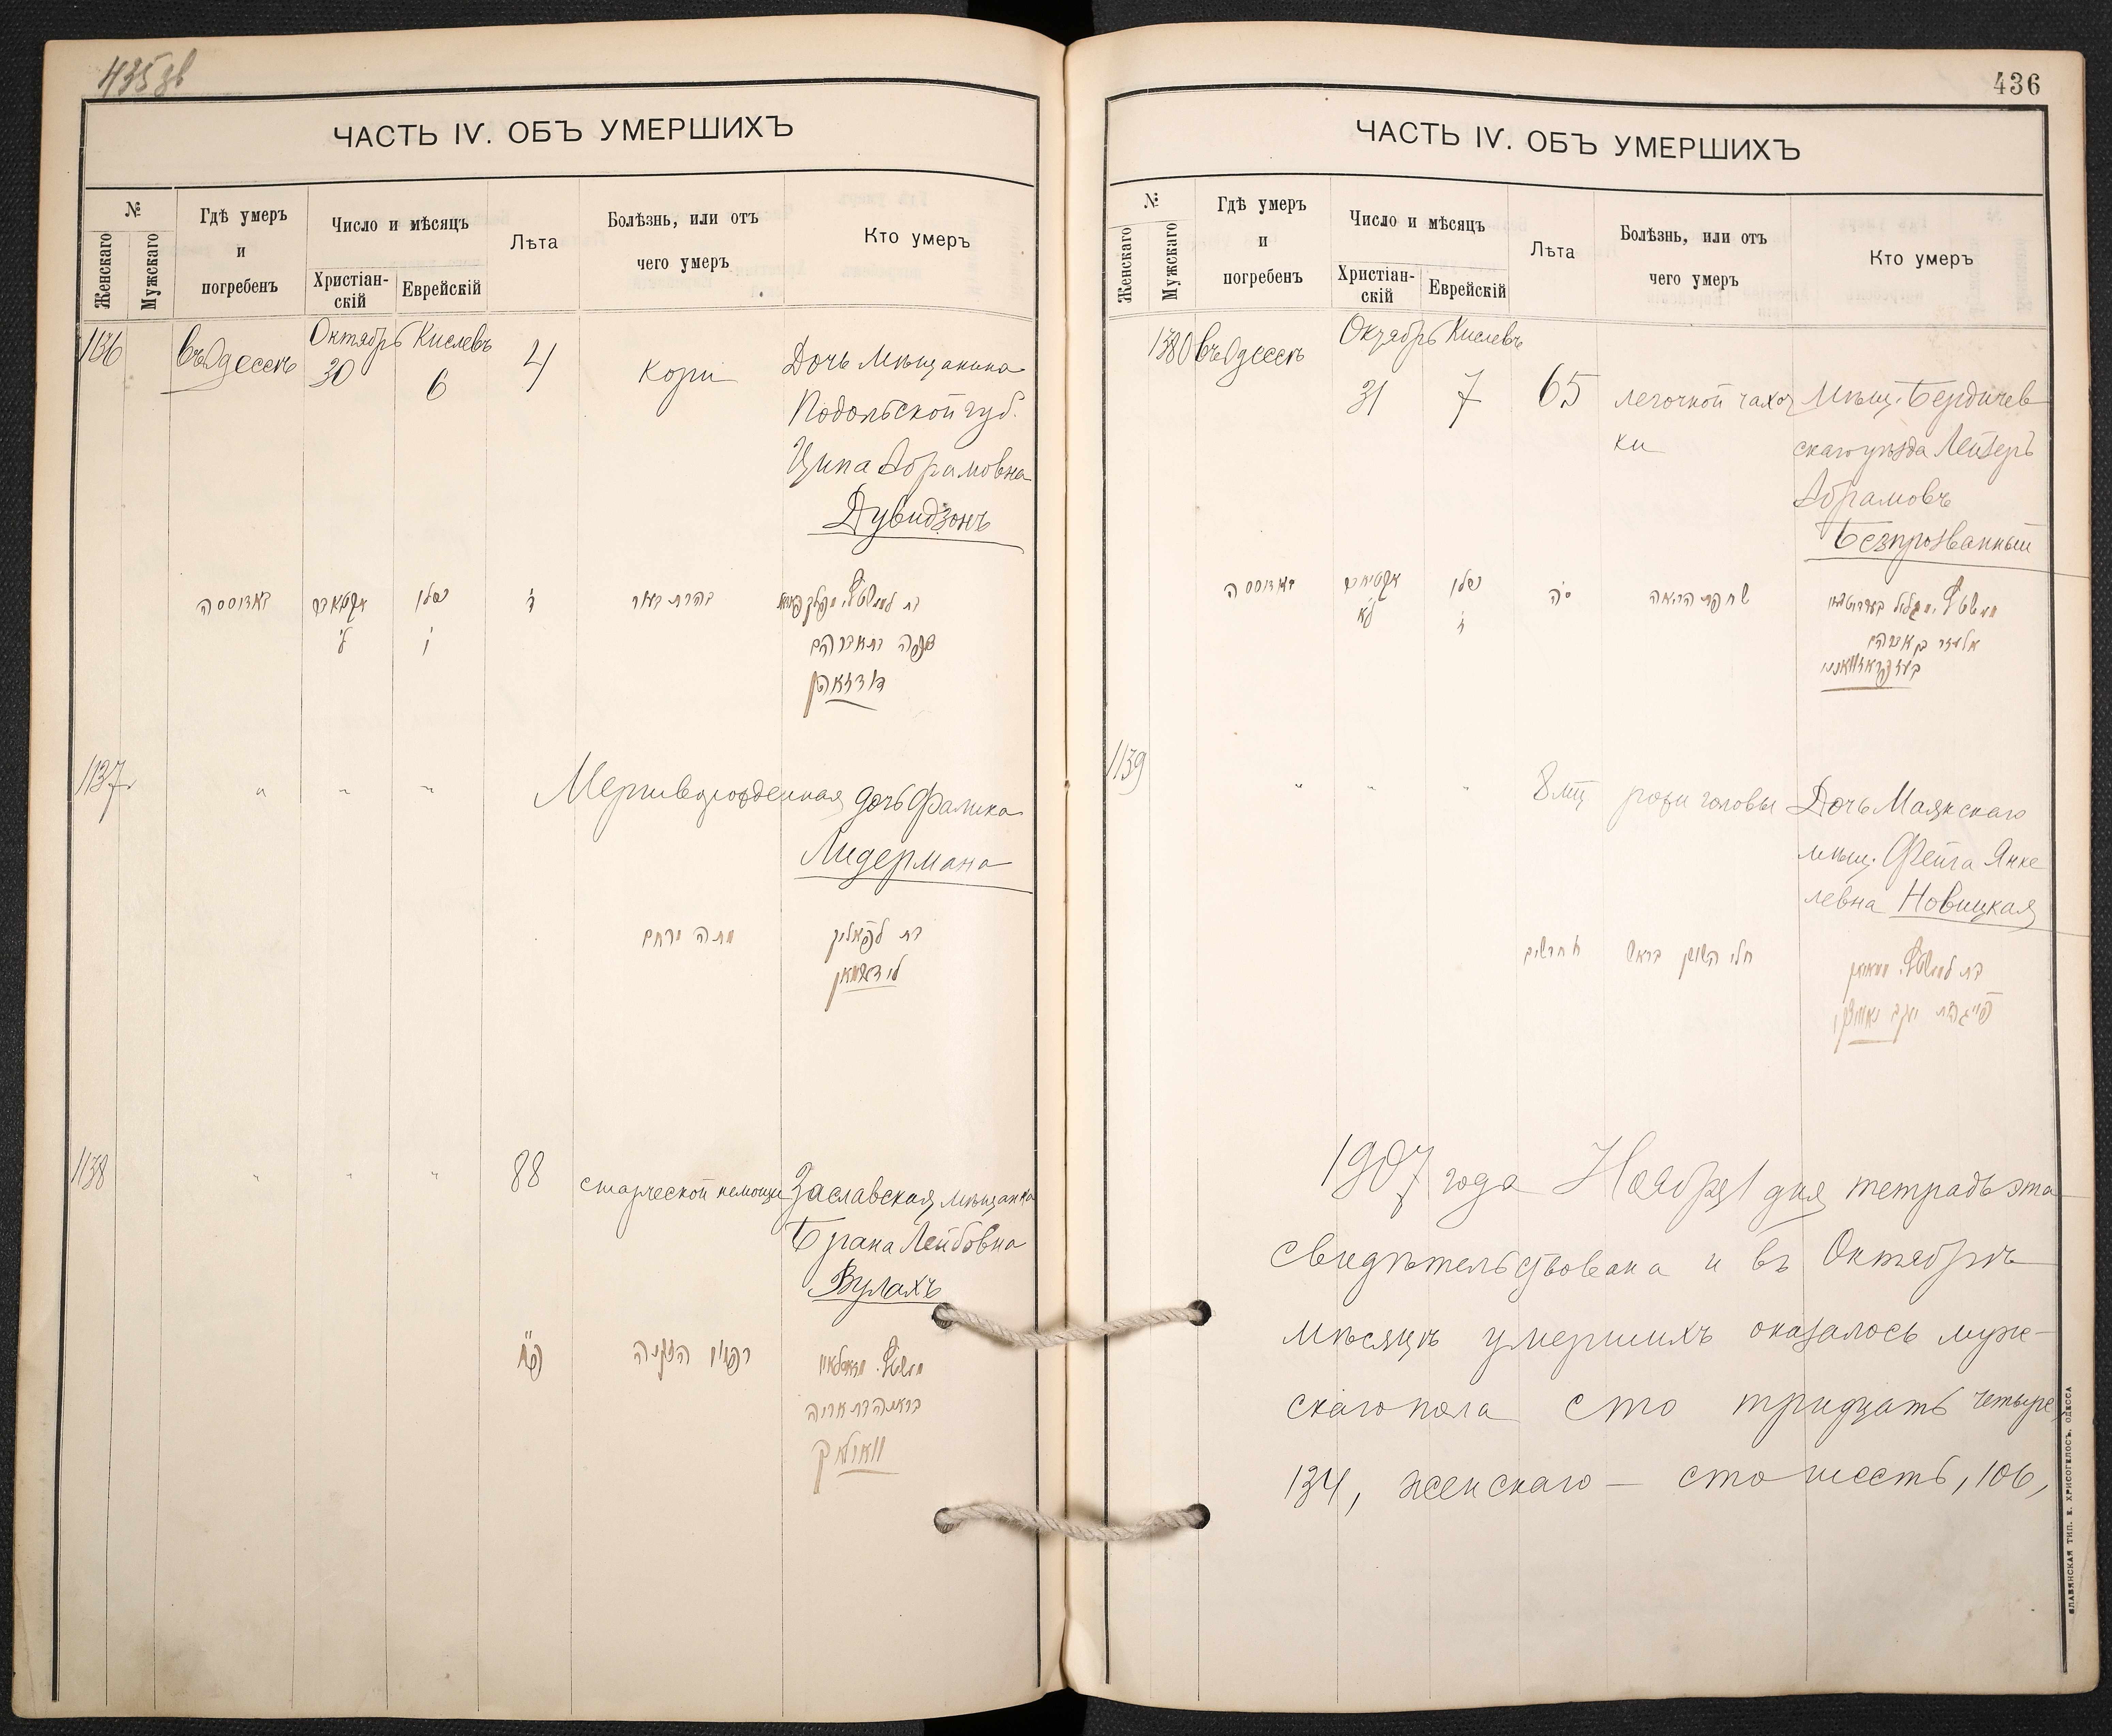 435 зв
ЧАСТЬ IV. ОБЪ УМЕРШИХЪ
№
Женскаго
Мужскаго
Гдѣ умеръ
и
погребенъ
Число и мѣсяцъ
Христіан-
скій
Еврейскій
Лѣта
Болѣзнь, или отъ
чего умеръ
Кто умеръ
1136 въ Одессѣ Октябрь 30 Кислевъ 6 4 кори Дочь мѣщанина
Подольской губ.
Ципа Абрамовна
Дувидзонъ
באדוססה
כסלו
ו
ד
1137 " " " Мертворожденная дочь Фалика
Лидермана
מתה ירחם
בת לפאליק
לידערמאן
1138 " " " 88 старческой немощи Заславская мѣщанка
Брана Лейбовна
Вулахъ
פ״ח
436
ЧАСТЬ IV. ОБЪ УМЕРШИХЪ
№
Женскаго
Мужскаго
Гдѣ умеръ
и
погребенъ
Число и мѣсяцъ
Христіан-
скій
Еврейскій
Лѣта
Болѣзнь, или отъ
чего умеръ
Кто умеръ
1380 въ Одессѣ Октябрь 31 Кислевъ 7 65 легочной чахот
ки
Мѣщ. Бердичев
скаго уѣзда Лейзеръ
Абрамовъ
Безпрозванный
באדוססה
לא
כסלו
ז
סה
שחפת הריאה
אלעזר בן אברהם
1139 " " " 8 мц рожи головы Дочь Маякскаго
мѣщ. Фейга Янке
левна Новицкая
ח חדשים
חלי השושן בראש
1907 года Ноября 1 дня тетрадь эта
свидѣтельствована и въ Октябрѣ
мѣсяцѣ умершихъ оказалось муж-
скаго пола сто тридцать четыре
134, женскаго — сто шесть, 106,
СЛАВЯНСКАЯ ТИП. Е. ХРИСОГЕЛОСЪ. ОДЕССА